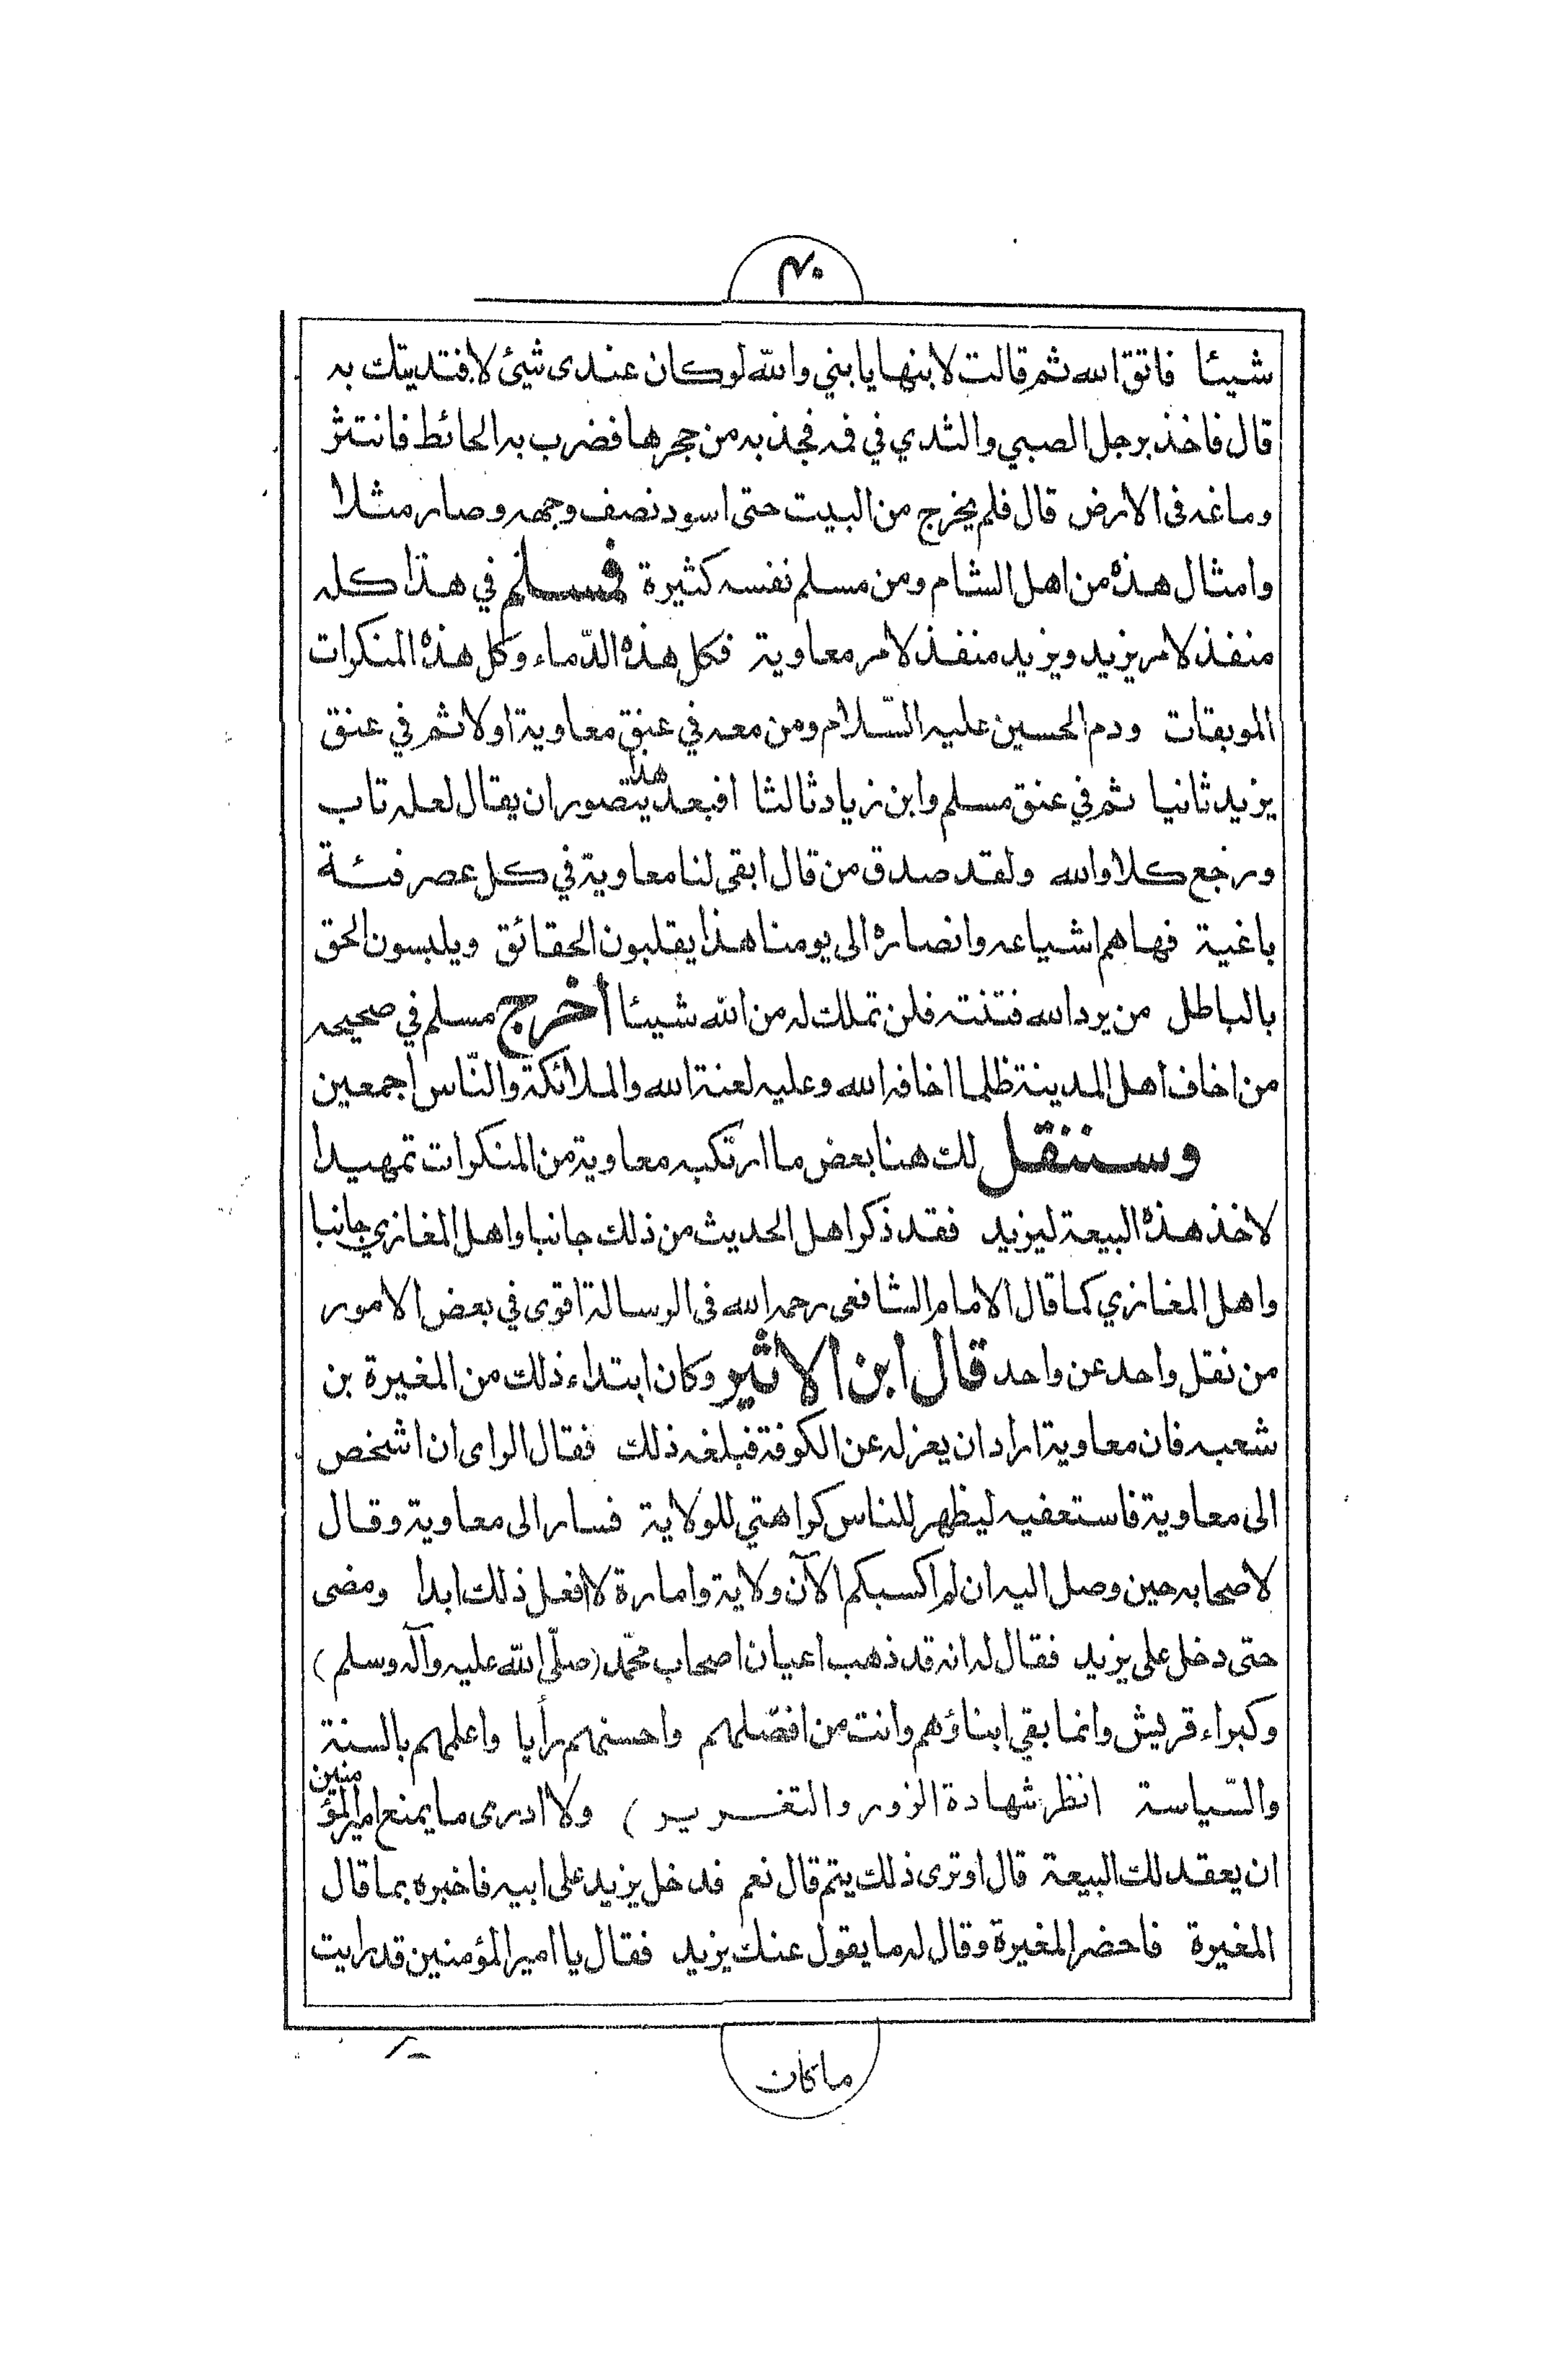 ٤٠
شيئا فاتق الله ثم قالت لابنها يا بني والله لو كان عندى شيئ لافتديتك به
قال فاخذ برجل الصبي والثدي في فمه فجذبه من حجرها فضرب به الحائط فانتثر
دماغه فى الارض قال فلم يخرج من البيت حتى اسود نصف وجهه وصار مثلا
وامثال هذه من اهل الشام ومن مسلم نفسه كثيرة فمسلم في هذا كله
منفذ لامر يزيد ويزيد منفذ لامر معاوية فكل هذه الدّماء وكل هذه المنكرات
الموبقات ودم الحسين عليه السّلام ومن معه في عنق معاوية اولا ثم في عنق
يزيد ثانيا ثم في عنق مسلم وابن زياد ثالثا افبعد هذا يتصور ان يقال لعله تاب
ورجع كلا والله ولقد صدق من قال ابقى لنا معاوية في كل عصر فئة
باغية فهاهم اشياعه وانصاره الى يومنا هذا يقلبون الحقائق ويلبسون الحق
بالباطل من يرد الله فتنته فلن تملك له من الله شيئا أخرج مسلم في صحيحه
من اخاف اهل المدينة ظلما اخافه الله وعليه لعنة الله والملائكة والنّاس اجمعين
وسننقل لك هنا بعض ما ارتكبه معاوية من المنكرات تمهيدا
لاخذ هذه البيعة ليزيد فقد ذكر اهل الحديث من ذلك جانبا واهل المغازي جانبا
واهل المغازي كما قال الامام الشافعى رحمه الله فى الرسالة اقوى في بعض الامور
من نقل واحد عن واحد قال ابن الاثير وكان ابتداء ذلك من المغيرة بن
شعبه فان معاوية اراد ان يعزله عن الكوفة فبلغه ذلك فقال الراى ان اشخص
الى معاوية فاستعفيه ليظهر للناس كراهتي للولاية فسار الى معاوية وقال
لاصحابه حين وصل اليه ان لم اكسبكم الآن ولاية وامارة لا افعل ذلك ابدا ومضى
حتى دخل على يزيد فقال له انه قد ذهب اعيان اصحاب محمّد (صلّى الله عليه وآله وسلم)
وكبراء قريش وانما بقي ابناؤهم وانت من افضلهم واحسنهم رأيا واعلمهم بالسنة
والسّياسة انظر شهادة الزور والتغرير ) ولا ادرى ما يمنع امير المؤمنين
ان يعقد لك البيعة قال اوترى ذلك يتم قال نعم فدخل يزيد على ابيه فاخبره بما قال
المغيرة فاحضر المغيرة وقال له ما يقول عنك يزيد فقال يا امير المؤمنين قد رايت
ما كان